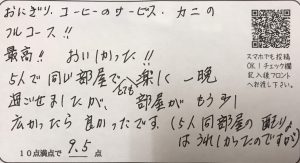 おにぎり、コーヒーのサービス・カニの
フルコース!!
最高!! おいしかった!!
5人で同じ部屋でとても楽しく一晩
過ごせましたが、部屋がもう少し
広かったら良かったです。(5人同部屋の配りょ
はうれしかったのですが)
10点満点で 9.5 点
スマホでも投稿
OK!チェック欄
記入後フロント
へお渡し下さい。